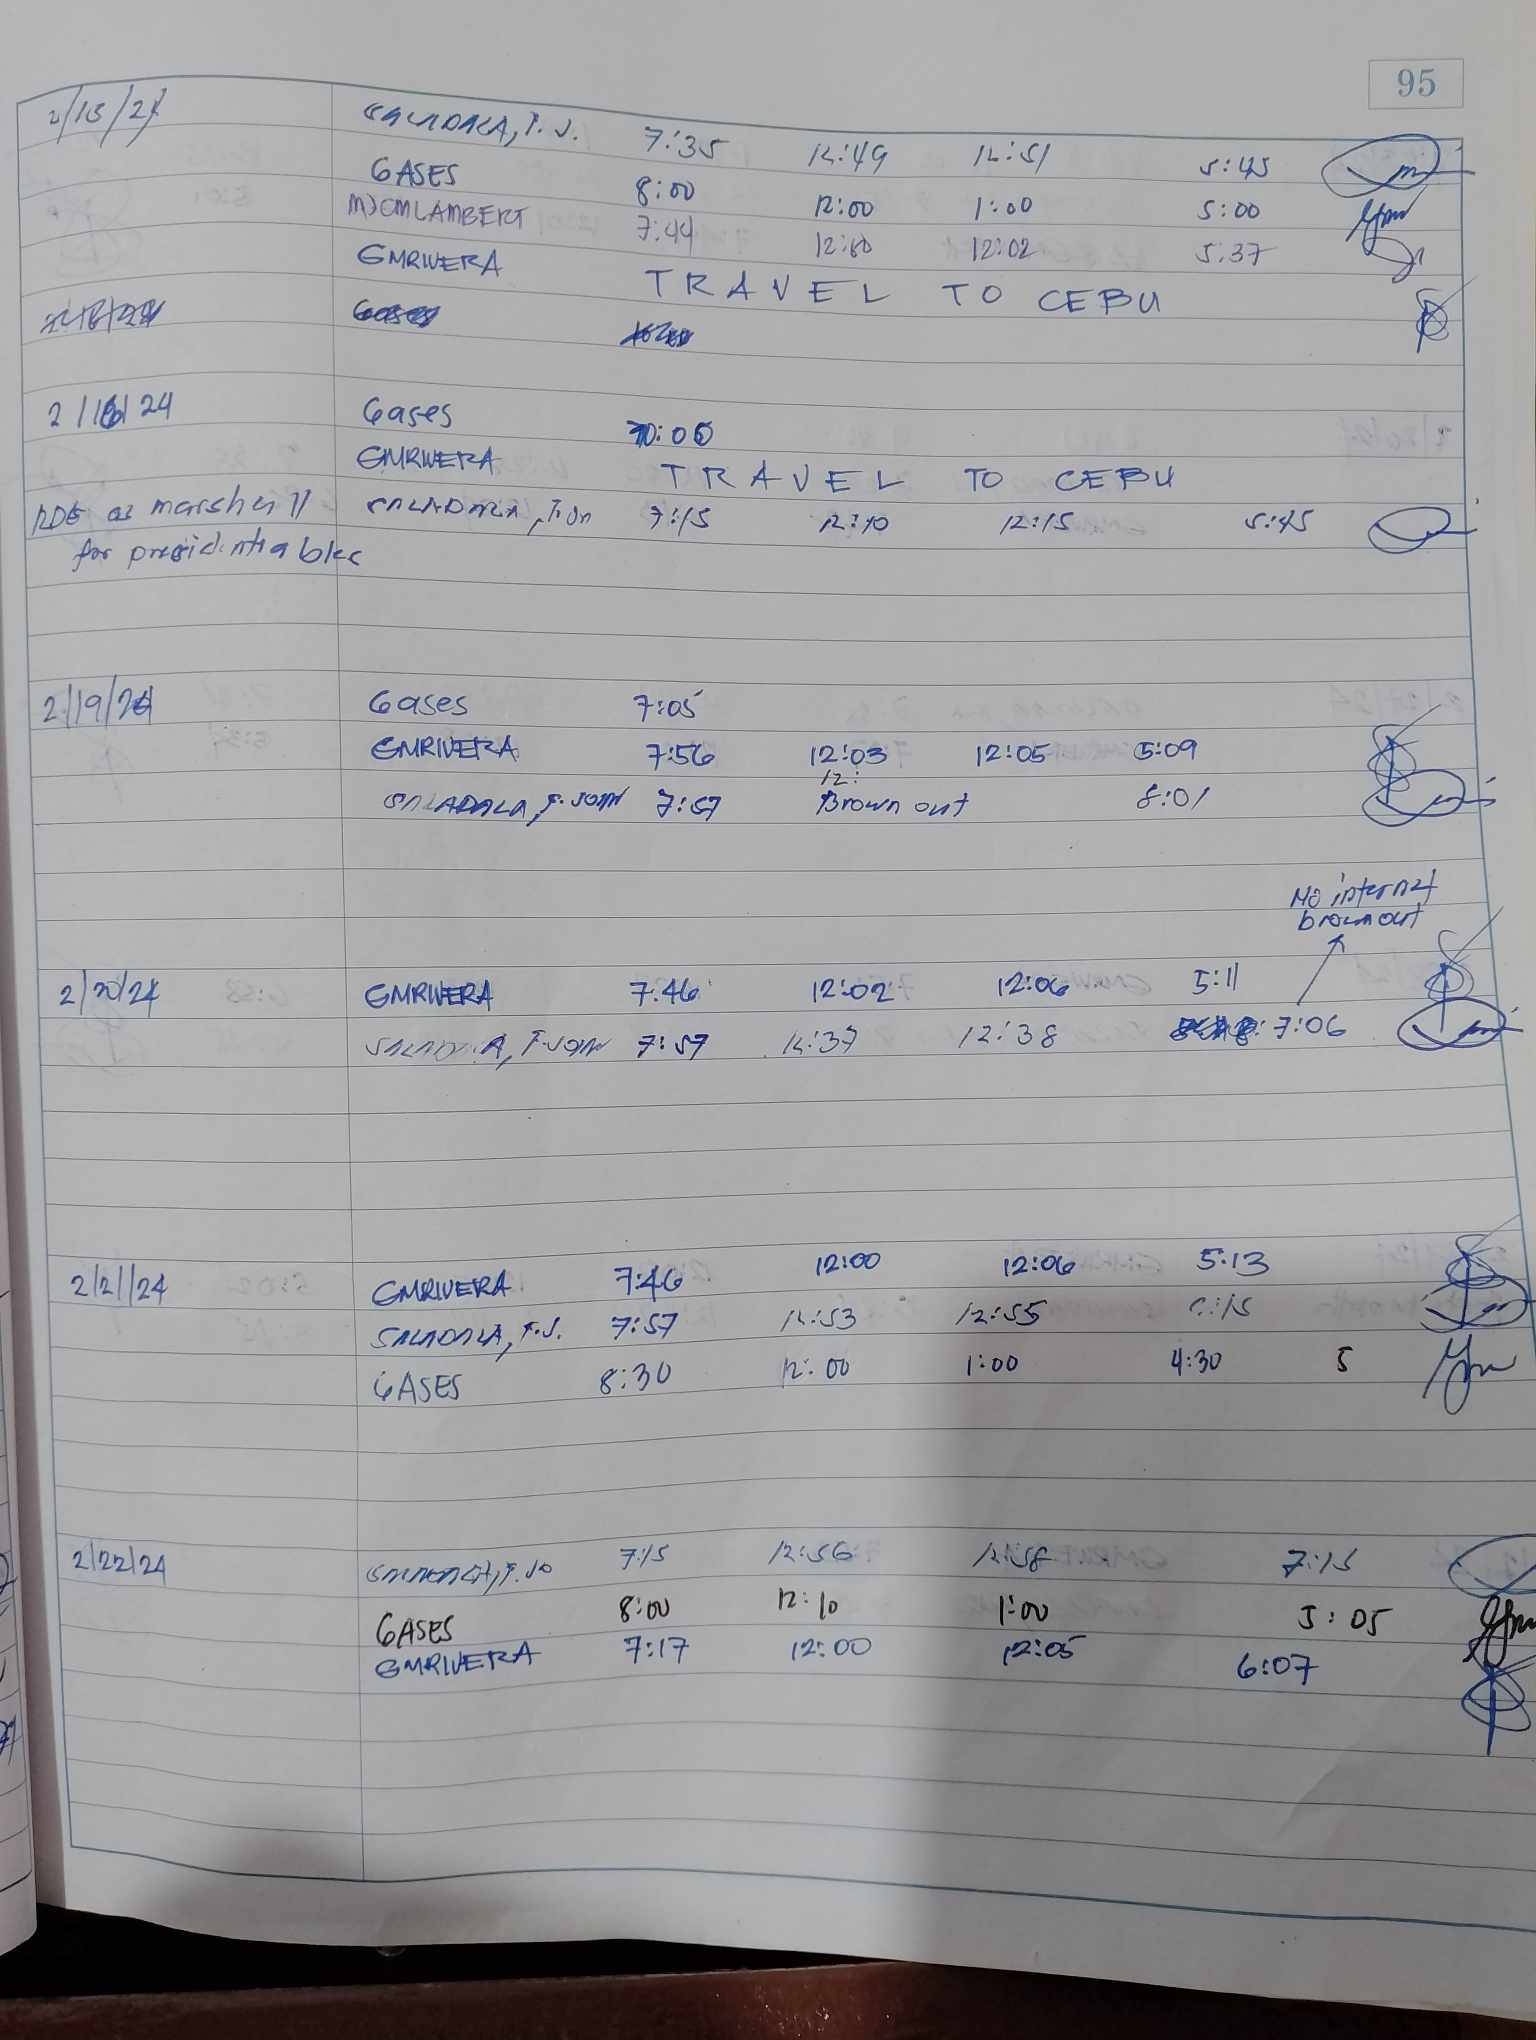 95
2/15/24 SALADAGA, F. J. 7:35 12:49 12:51 5:45
GASES 8:00 12:00 1:00 5:00
MJCMLAMBERT 7:44 12:00 12:02 5:37
GMRIVERA TRAVEL TO CEBU
Gases
2/16/24 Gases 7:00
GMRIVERA TRAVEL TO CEBU
RDE as marshall SALADAGA, F. Jon 7:15 12:10 12:15 5:45
for presidentiables
2/19/24 Gases 7:05
GMRIVERA 7:56 12:03 12:05 5:09
12:
SALADAGA, F. JOHN 7:57 Brown out 8:01
No internet
brown out
2/20/24 GMRIVERA 7:46 12:02 12:06 5:11
SALADAGA, F. JOHN 7:57 12:37 12:38 7:06
2/21/24 GMRIVERA 7:46 12:00 12:06 5:13
SALADAGA, F.J. 7:57 12:53 12:55 :15
GASES 8:30 12:00 1:00 4:30 5
2/22/24 SALADAGA, F. JO 7:15 12:56 12:58 7:15
GASES 8:00 12:10 1:00 5:05
GMRIVERA 7:17 12:00 12:05 6:07